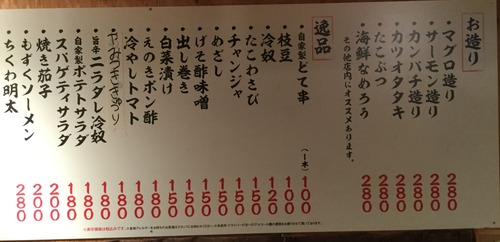 お造り
・マグロ造り 280
・サーモン造り 280
・カンパチ造り 280
・カツオタタキ 280
・たこぶつ 280
・海鮮なめろう 280
その他店内にオススメあります。
逸品
・自家製どて串 (一本) 100
・枝豆 100
・冷奴 100
・たこわさび 150
・チャンジャ 150
・めざし 150
・げそ酢味噌 150
・出し巻き 180
・白菜漬け 150
・えのきポン酢 180
・冷やしトマト 180
・やみつききゅうり 180
・旨辛ニラダレ冷奴 180
・自家製ポテトサラダ 180
・スパゲティサラダ 180
・焼き茄子 200
・もずくソーメン 200
・ちくわ明太 280